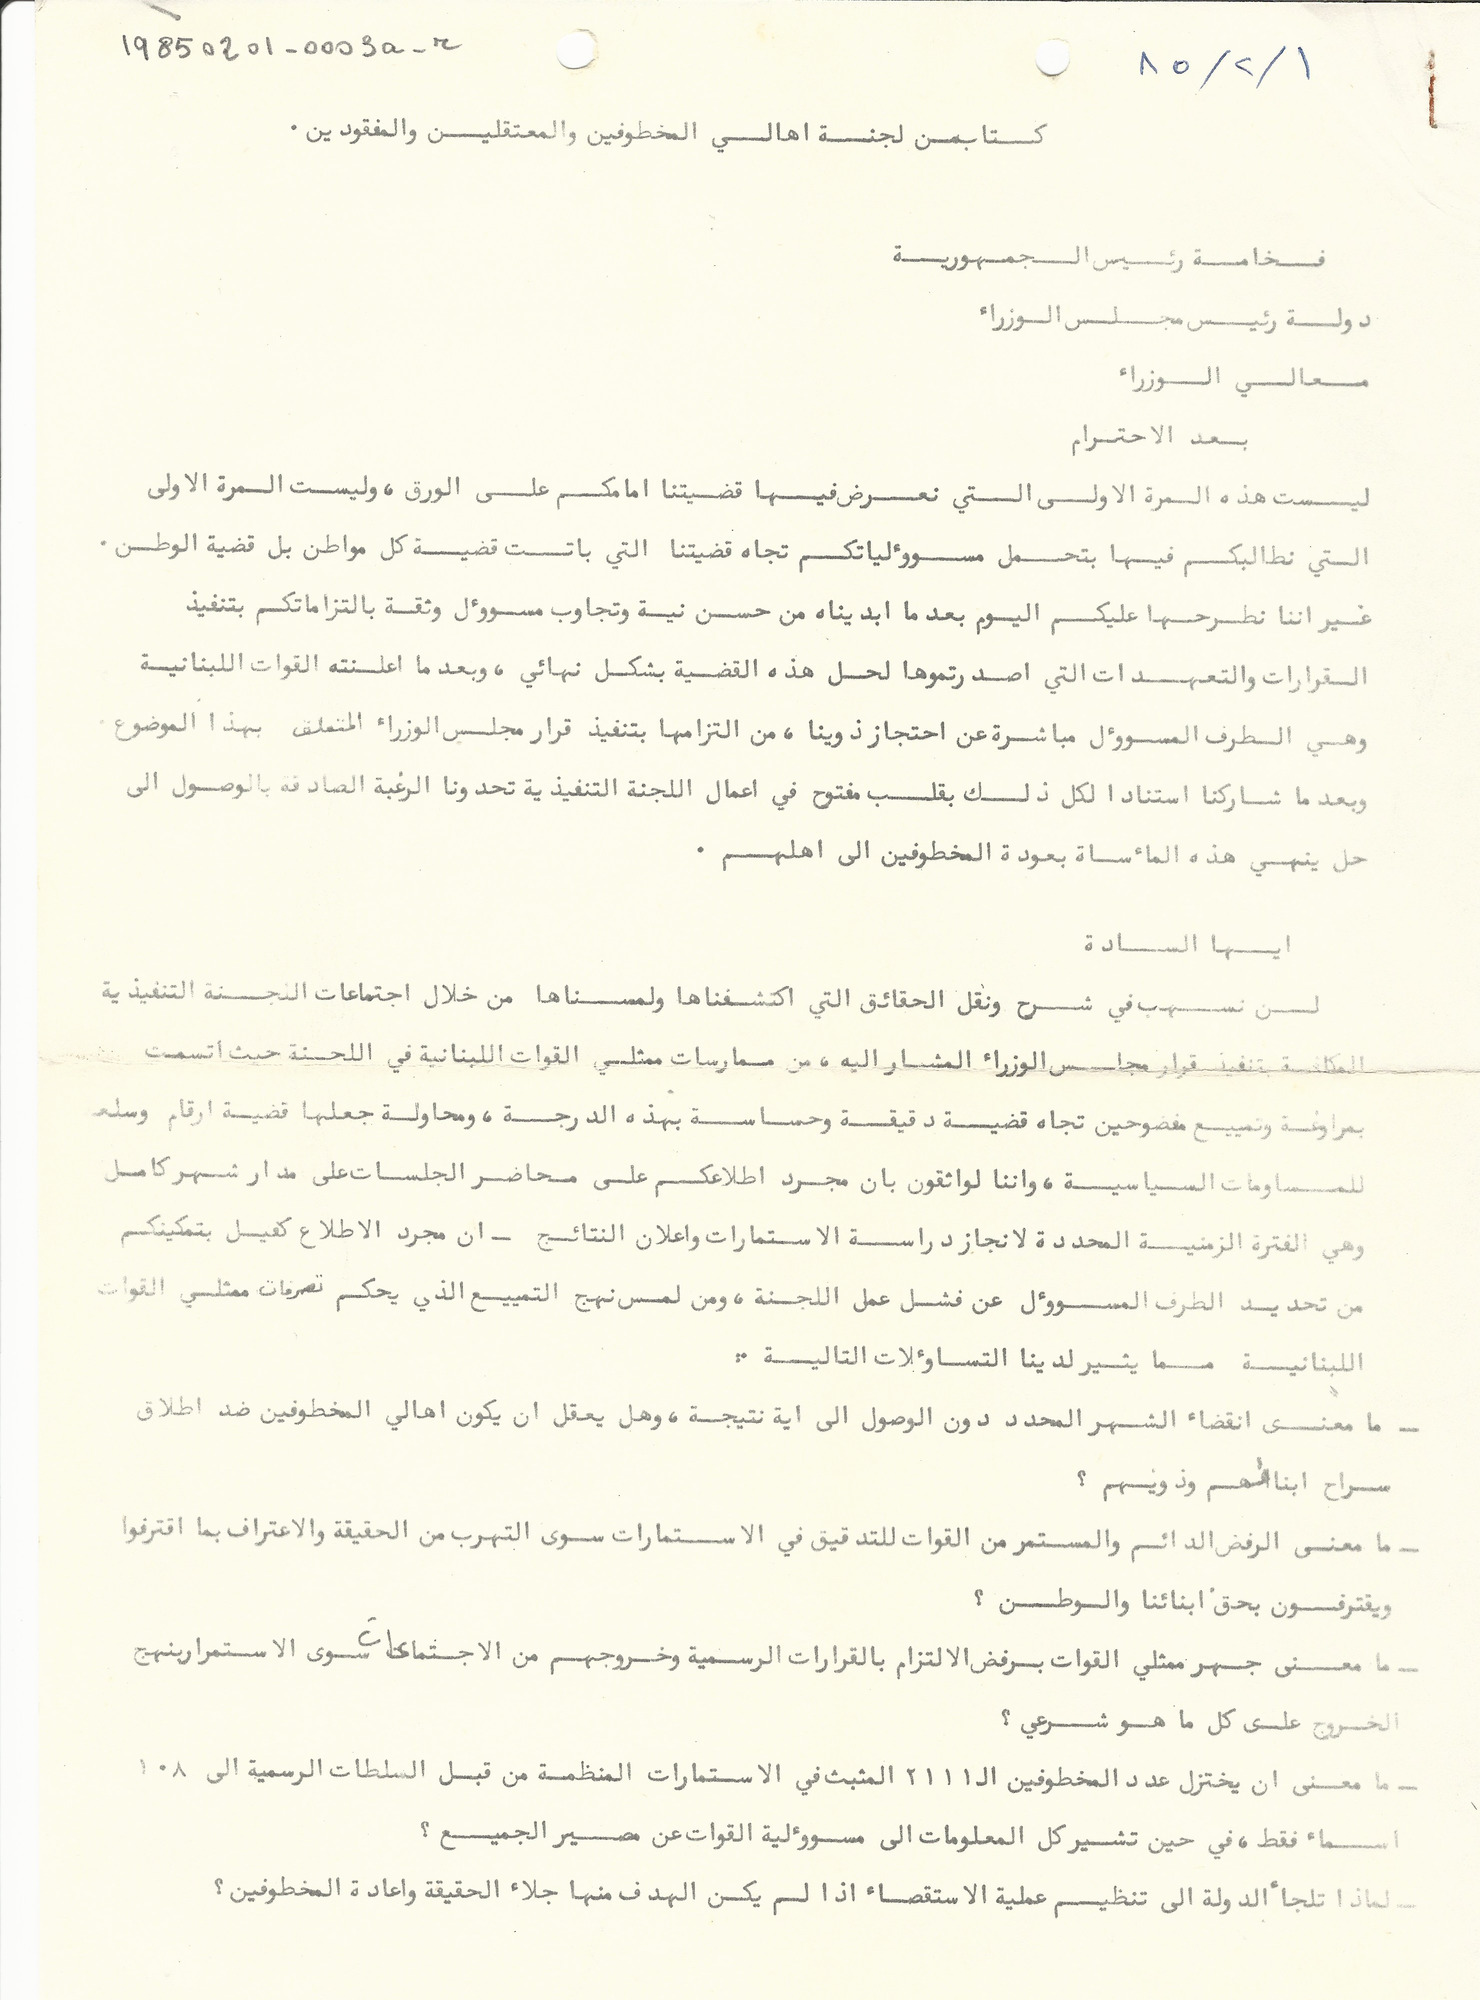 19850201-0003a-r
٨٥/٢/١
كتاب من لجنة اهالي المخطوفين والمعتقلين والمفقودين .
فخامة رئيس الجمهورية
دولة رئيس مجلس الوزراء
معالي الوزراء
بعد الاحترام
ليست هذه المرة الاولى التي نعرض فيها قضيتنا امامكم على الورق ، وليست المرة الاولى
التي نطالبكم فيها بتحمل مسوؤلياتكم تجاه قضيتنا التي باتت قضية كل مواطن بل قضية الوطن .
غير اننا نطرحها عليكم اليوم بعد ما ابديناه من حسن نية وتجاوب مسوؤل وثقة بالتزاماتكم بتنفيذ
القرارات والتعهدات التي اصدرتموها لحل هذه القضية بشكل نهائي ، وبعد ما اعلنته القوات اللبنانية
وهي الطرف المسوؤل مباشرة عن احتجاز ذوينا ، من التزامها بتنفيذ قرار مجلس الوزراء المتعلق بهذا الموضوع
وبعد ما شاركنا استنادا لكل ذلك بقلب مفتوح في اعمال اللجنة التنفيذية تحدونا الرغبة الصادقة بالوصول الى
حل ينهي هذه المأساة بعودة المخطوفين الى اهلهم .
ايها السادة
لن نسهب في شرح ونقل الحقائق التي اكتشفناها ولمسناها من خلال اجتماعات اللجنة التنفيذية
المكلفة بتنفيذ قرار مجلس الوزراء المشار اليه ، من ممارسات ممثلي القوات اللبنانية في اللجنة حيث اتسمت
بمراوغة وتمييع مفضوحين تجاه قضية دقيقة وحساسة بهذه الدرجة ، ومحاولة جعلها قضية ارقام وسلعة
للمساومات السياسية ، واننا لواثقون بان مجرد اطلاعكم على محاضر الجلسات على مدار شهر كامل
وهي الفترة الزمنية المحددة لانجاز دراسة الاستمارات واعلان النتائج – ان مجرد الاطلاع كفيل بتمكينكم
من تحديد الطرف المسوؤل عن فشل عمل اللجنة ، ومن لمس نهج التمييع الذي يحكم تصرفات ممثلي القوات
اللبنانية مما يثير لدينا التساؤلات التالية :
– ما معنى انقضاء الشهر المحدد دون الوصول الى اية نتيجة ، وهل يعقل ان يكون اهالي المخطوفين ضد اطلاق
سراح ابنائهم وذويهم ؟
– ما معنى الرفض الدائم والمستمر من القوات للتدقيق في الاستمارات سوى التهرب من الحقيقة والاعتراف بما اقترفوا
ويقترفون بحق ابنائنا والوطن ؟
– ما معنى جهر ممثلي القوات برفض الالتزام بالقرارات الرسمية وخروجهم من الاجتماعات سوى الاستمرار بنهج
الخروج على كل ما هو شرعي ؟
– ما معنى ان يختزل عدد المخطوفين الـ ٢١١١ المثبت في الاستمارات المنظمة من قبل السلطات الرسمية الى ١٠٨
اسماء فقط ، في حين تشير كل المعلومات الى مسوؤلية القوات عن مصير الجميع ؟
– لماذا تلجأ الدولة الى تنظيم عملية الاستقصاء اذا لم يكن الهدف منها جلاء الحقيقة واعادة المخطوفين ؟